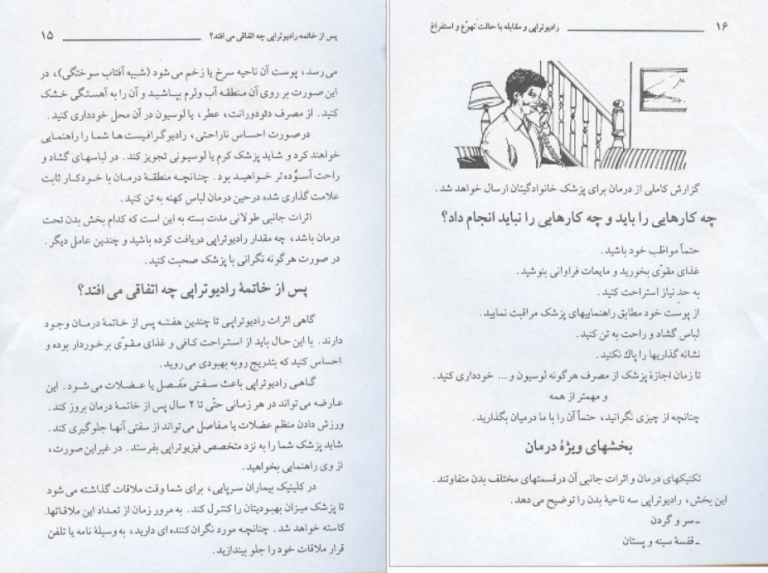 پس از خاتمه رادیوتراپی چه اتفاقی می افتد؟ ۱۵
می رسد، پوست آن ناحیه سرخ یا زخم می شود (شبیه آفتاب سوختگی)، در
این صورت بر روی آن منطقه آب ولرم بپاشید و آن را به آهستگی خشک
کنید. از مصرف دئودورانت، عطر، یا لوسیون در آن محل خودداری کنید.
درصورت احساس ناراحتی، رادیوگرافیست ها شما را راهنمایی
خواهند کرد و شاید پزشک کرم یا لوسیونی تجویز کند. در لباسهای گشاد و
راحت آسوده تر خواهید بود. چنانچه منطقهٔ درمان با خودکار ثابت
علامت گذاری شده درحین درمان لباس کهنه به تن کنید.
اثرات جانبی طولانی مدت بسته به این است که کدام بخش بدن تحت
درمان باشد، چه مقدار رادیوتراپی دریافت کرده باشید و چندین عامل دیگر.
در صورت هرگونه نگرانی با پزشک صحبت کنید.
پس از خاتمهٔ رادیوتراپی چه اتفاقی می افتد؟
گاهی اثرات رادیوتراپی تا چندین هفته پس از خاتمهٔ درمان وجود
دارند. با این حال باید از استراحت کافی و غذای مقوّی برخوردار بوده و
احساس کنید که بتدریج روبه بهبودی می روید.
گاهی رادیوتراپی باعث سفتی مفصل یا عضلات می شود. این
عارضه می تواند در هر زمانی حتّی تا ۲ سال پس از خاتمهٔ درمان بروز کند.
ورزش دادن منظم عضلات یا مفاصل می تواند از سفتی آنها جلوگیری کند.
شاید پزشک شما را به نزد متخصص فیزیوتراپی بفرستد. در غیر این صورت،
از وی راهنمایی بخواهید.
در کلینیک بیماران سرپایی، برای شما وقت ملاقات گذاشته می شود
تا پزشک میزان بهبودیتان را کنترل کند. به مرور زمان از تعداد این ملاقاتها،
کاسته خواهد شد. چنانچه مورد نگران کننده ای دارید، به وسیلهٔ نامه یا تلفن
قرار ملاقات خود را جلو بیندازید.
۱۶ رادیوتراپی و مقابله با حالت تهوّع و استفراغ
گزارش کاملی از درمان برای پزشک خانوادگیتان ارسال خواهد شد.
چه کارهایی را باید و چه کارهایی را نباید انجام داد؟
حتماً مواظب خود باشید.
غذای مقوّی بخورید و مایعات فراوانی بنوشید.
به حدِ نیاز استراحت کنید.
از پوست خود مطابق راهنماییهای پزشک مراقبت نمایید.
لباس گشاد و راحت به تن کنید.
نشانه گذاریها را پاك نکنید.
تا زمان اجازهٔ پزشک از مصرف هرگونه لوسیون و... خودداری کنید.
و مهمتر از همه
چنانچه از چیزی نگرانید، حتماً آن را با ما درمیان بگذارید.
بخشهای ویژهٔ درمان
تکنیکهای درمان و اثرات جانبی آن درقسمتهای مختلف بدن متفاوتند.
این بخش، رادیوتراپی سه ناحیهٔ بدن را توضیح می دهد.
ـ سر و گردن
ـ قفسهٔ سینه و پستان